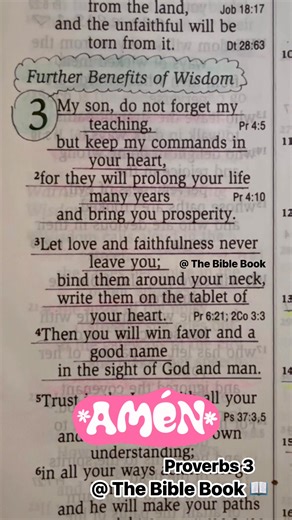 from the land, Job 18:17
and the unfaithful will be
torn from it. Dt 28:63
Further Benefits of Wisdom
3 My son, do not forget my
teaching, Pr 4:5
but keep my commands in
your heart,
2 for they will prolong your life
many years Pr 4:10
and bring you prosperity.
3 Let love and faithfulness never
leave you;
@ The Bible Book
bind them around your neck,
write them on the tablet of
your heart. Pr 6:21; 2Co 3:3
4 Then you will win favor and a
good name
in the sight of God and man.
5 Trust all your
*AMÉN* Ps 37:3,5
and own
understanding;
6 in all your ways
Proverbs 3
@ The Bible Book 📖
and he will make your paths
11
12
13
14
15